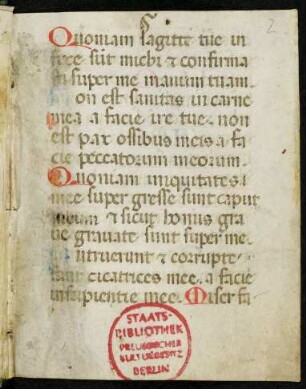 2
Quoniam sagitte tue in
fixe sūt michi & confirma
sti super me manum tuam.
Non est sanitas in carne
mea a facie ire tue. non
est pax ossibus meis a fa
cie peccatorum meorum.
Quoniam iniquitates
mee super gresse sunt caput
meum & sicut honus gra
ue grauate sunt super me.
Putruerunt & corrupte
sunt cicatrices mee. a facie
insipientie mee. Miser fa
STAATS-
BIBLIOTHEK
PREUSSISCHER
KULTURBESITZ
BERLIN